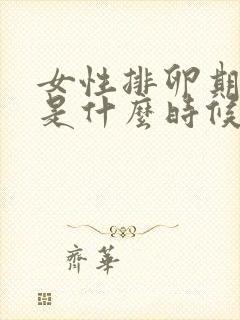 女性排卵期
是什麼時候
齊華